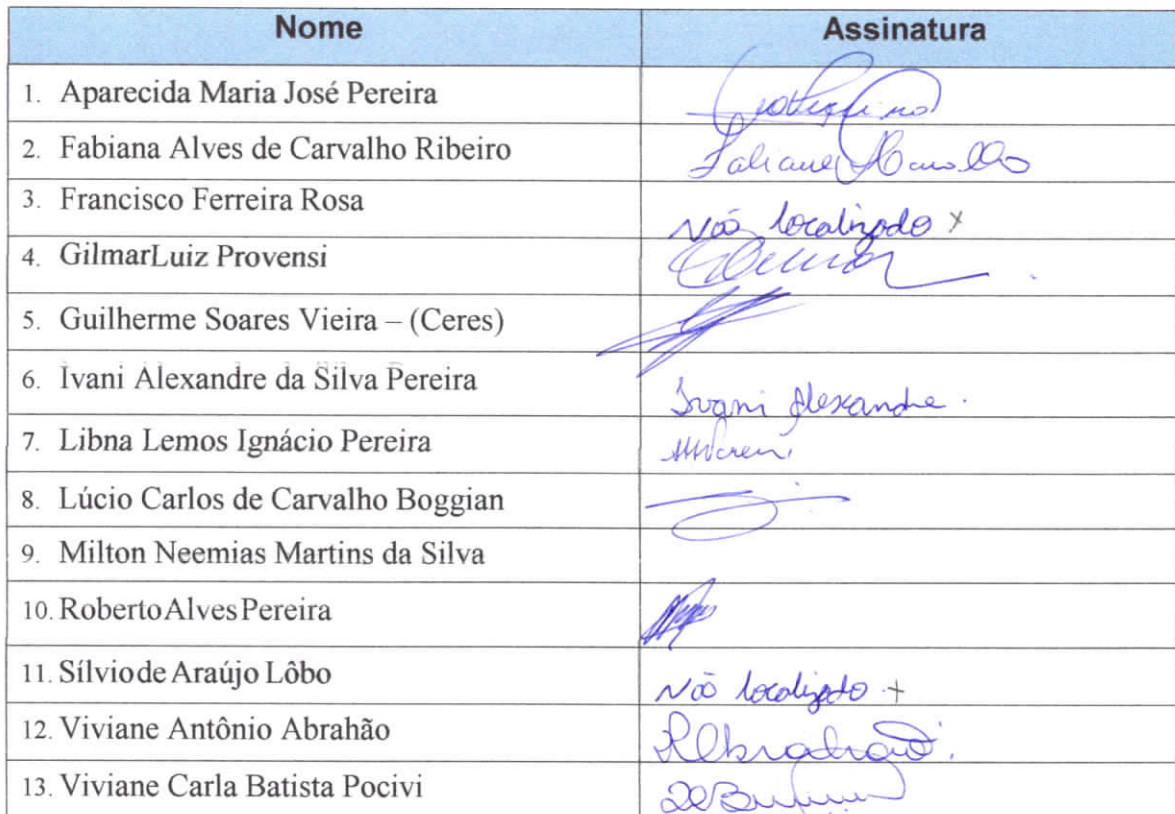 Nome Assinatura
1. Aparecida Maria José Pereira
2. Fabiana Alves de Carvalho Ribeiro
3. Francisco Ferreira Rosa Não localizado x
4. GilmarLuiz Provensi
5. Guilherme Soares Vieira – (Ceres)
6. Ivani Alexandre da Silva Pereira Ivani Alexandre.
7. Libna Lemos Ignácio Pereira
8. Lúcio Carlos de Carvalho Boggian
9. Milton Neemias Martins da Silva
10. RobertoAlvesPereira
11. Sílviode Araújo Lôbo Não localizado +
12. Viviane Antônio Abrahão
13. Viviane Carla Batista Pocivi